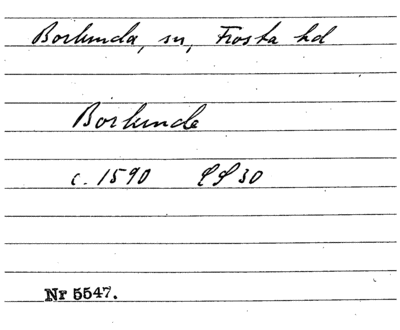 Borlunda, sn, Frosta hd
Borlunde
c. 1590 LL 30
Nr 5547.